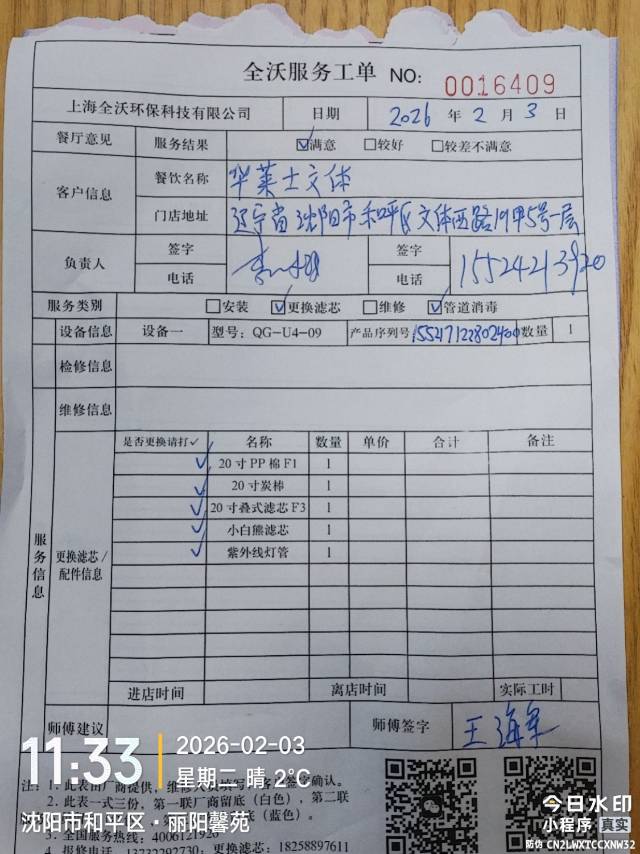 全沃服务工单 NO: 0016409
上海全沃环保科技有限公司 日期 2026 年 2 月 3 日
餐厅意见 服务结果 ☑满意 ☐较好 ☐较差不满意
客户信息 餐饮名称 华莱士文体
门店地址 辽宁省沈阳市和平区文体西路19甲5号一层
负责人 签字 签字
电话 电话 15524213920
服务类别 ☐安装 ☑更换滤芯 ☐维修 ☑管道消毒
设备信息 设备一 型号: QG-U4-09 产品序列号 155217122802400 数量 1
检修信息
维修信息
服务信息
更换滤芯/配件信息
是否更换请打✓ 名称 数量 单价 合计 备注
✓ 20寸PP棉F1 1
✓ 20寸炭棒 1
✓ 20寸叠式滤芯F3 1
✓ 小白熊滤芯 1
✓ 紫外线灯管 1
进店时间 离店时间 实际工时
师傅建议 师傅签字 王海军
注: 1. 此表由厂商提供, 维修人员填写 签字确认。
2. 此表一式三份, 第一联厂商留底（白色）, 第二联
底（蓝色）。
3. 全国服务热线: 4006121920
4. 报修电话: 13732292730; 更换滤芯: 18258897611
11:33
2026-02-03
星期二 晴 -2°C
沈阳市和平区·丽阳馨苑
今日水印
小程序 真实
防伪 CN2LWXTCCXNW32